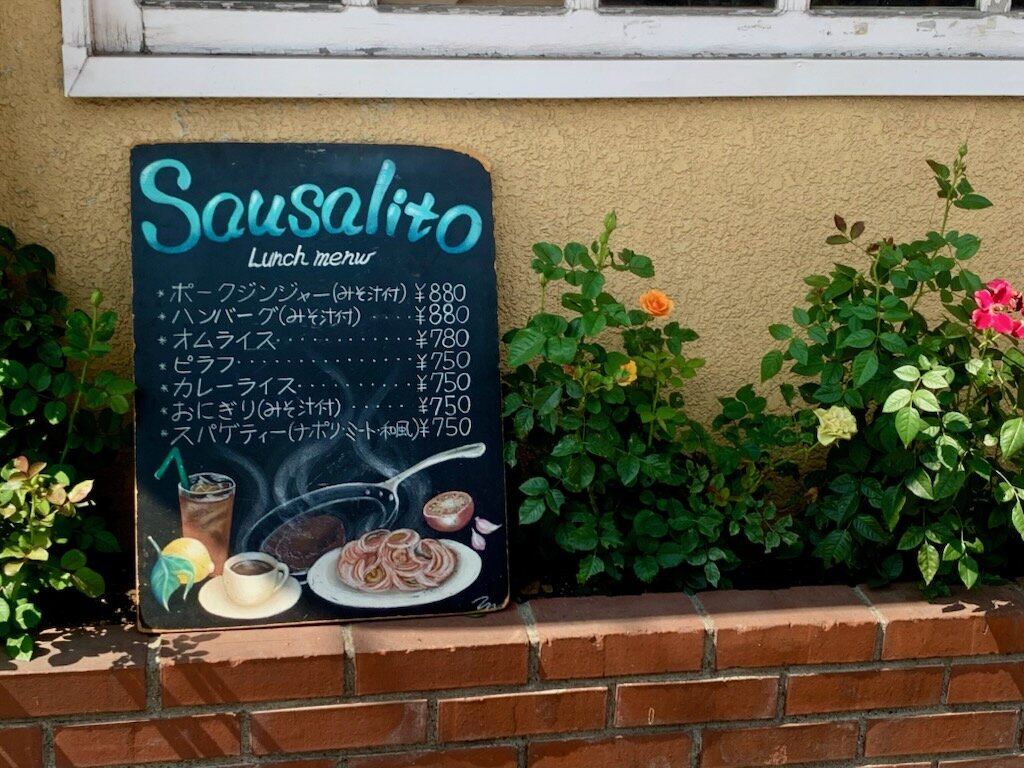 Sausalito
Lunch menu
* ポークジンジャー(みそ汁付) ¥880
* ハンバーグ(みそ汁付) ····· ¥880
* オムライス ············ ¥780
* ピラフ ················ ¥750
* カレーライス ·········· ¥750
* おにぎり(みそ汁付) ······ ¥750
* スパゲティー(ナポリ·ミート·和風) ¥750